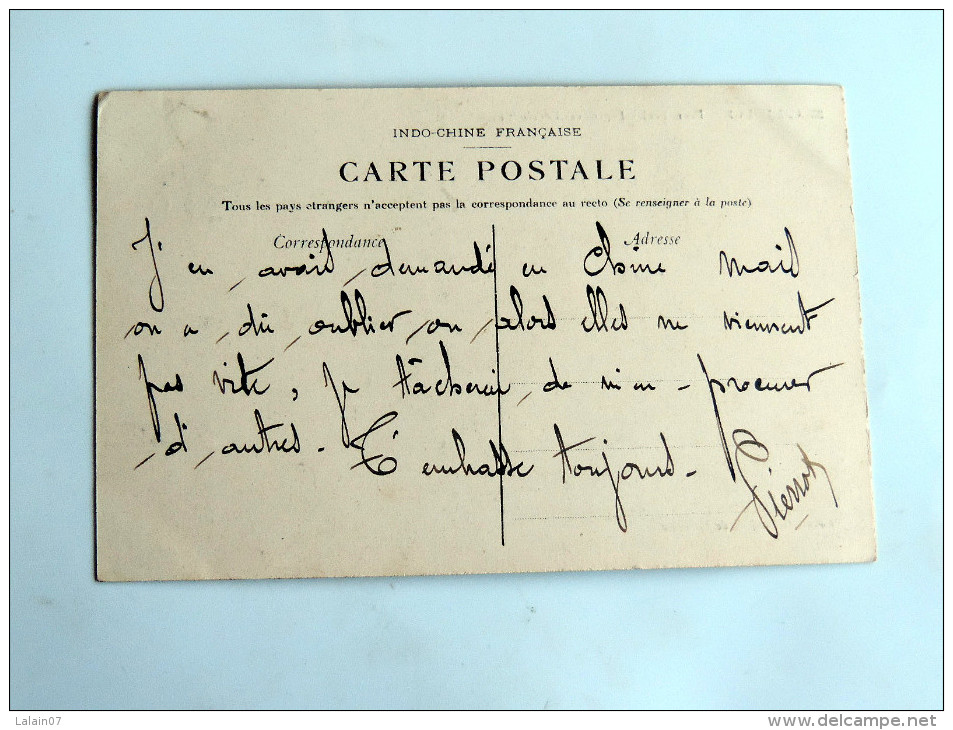 INDO-CHINE FRANÇAISE
CARTE POSTALE
Tous les pays étrangers n'acceptent pas la correspondance au recto (Se renseigner à la poste)
Correspondance
Adresse
J'en avais demandé en Chine mais
on a dû oublier, ou alors elles ne viennent
pas vite, je tâcherai de m'en procurer
d'autres. T'embrasse toujours.
Pierrot
Lalain07
www.delcampe.net